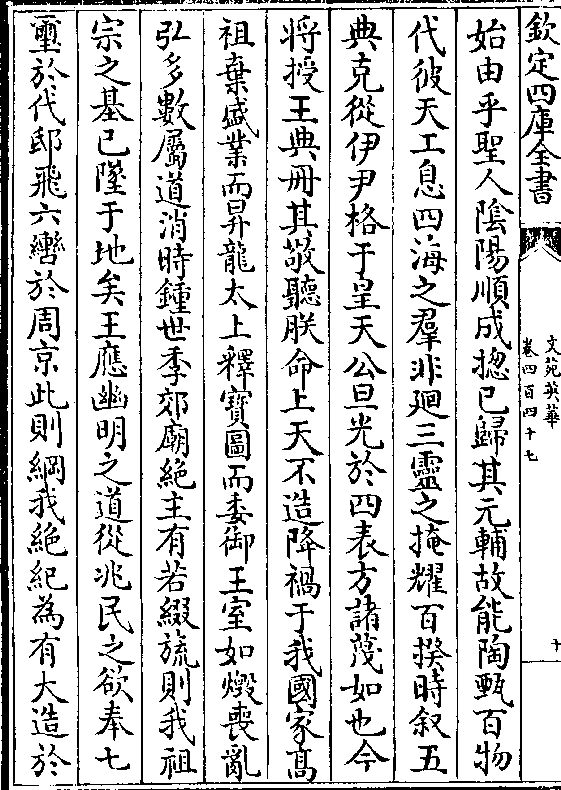 欽定四庫全書
文苑英華
卷四百四十七
十
始由乎聖人陰陽順成揔已歸其元輔故能陶甄百物
代彼天工息四海之羣非廻三靈之掩耀百揆時叙五
典克從伊尹格于皇天公旦光於四表方諸蔑如也今
將授王典冊其敬聽朕命上天不造降禍于我國家髙
祖棄盛業而昇龍太上釋寳圖而委御王室如燬喪亂
弘多數屬道消時鍾世季郊廟絶主有若綴旒則我祖
宗之基已墜于地矣王應幽明之道從兆民之欲奉七
璽於代邸飛六轡於周京此則綱我絶紀為有大造於